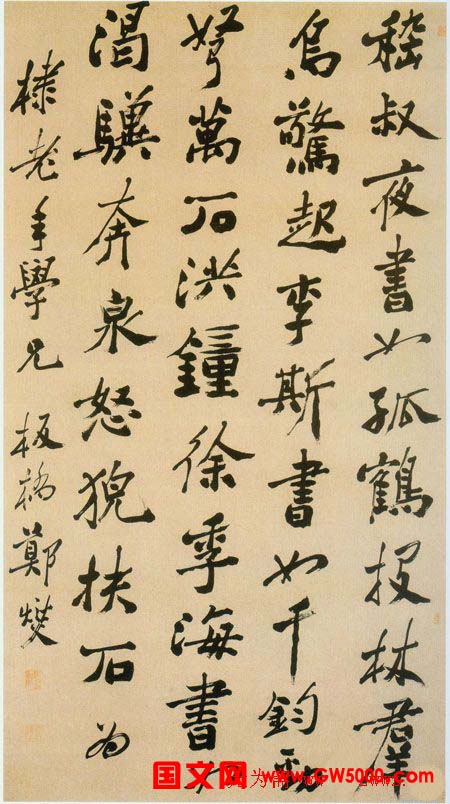 嵇叔夜書如孤鶴投林羣
烏驚起李斯書如千鈞勁
弩萬石洪鐘徐季海書如
渴驥奔泉怒猊扶石為
棣老年學兄 板橋鄭燮
国文网 www.GW5000.com